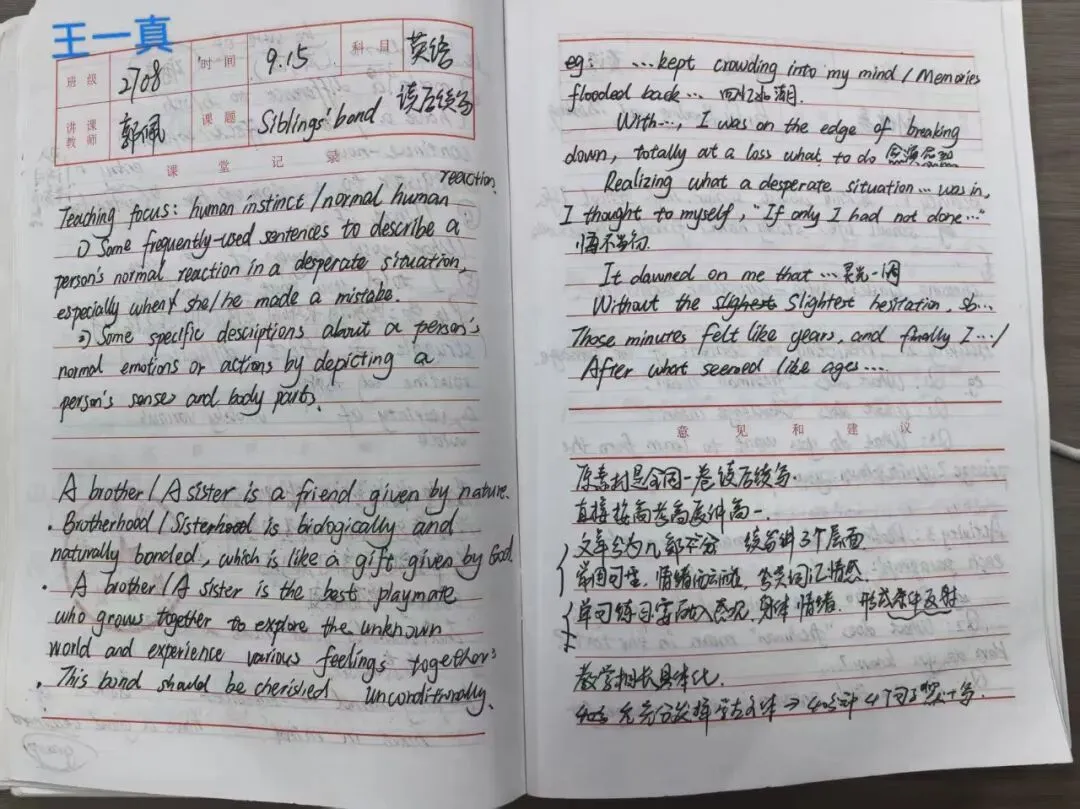 王一真
班级 2708 时间 9.15 科目 英语
讲课教师 郭佩 课题 Siblings' bond 读后续写
课堂记录
Teaching focus: human instinct / normal human reaction.
1) Some frequently-used sentences to describe a
person's normal reaction in a desperate situation,
especially when she/he made a mistake.
2) Some specific descriptions about a person's
normal emotions or actions by depicting a
person's senses and body parts.
A brother / A sister is a friend given by nature.
· Brotherhood / Sisterhood is biologically and
naturally bonded, which is like a gift given by God.
· A brother / A sister is the best playmate
who grows together to explore the unknown
world and experience various feelings together.
· This bond should be cherished unconditionally.
eg: ...kept crowding into my mind / Memories
flooded back... 回忆如潮.
With..., I was on the edge of breaking
down, totally at a loss what to do
Realizing what a desperate situation... was in,
I thought to myself, "If only I had not done..."
悔不当初
It dawned on me that ... 灵光一闪
Without the slighest slightest hesitation, sb...
Those minutes felt like years, and finally I.../
After what seemed like ages....
意见和建议
原素材是全国一卷读后续写.
直接接高考高度冲高一
文章分为几部分 续写料3个层面
常用句型, 情绪 词汇情感.
单句练习要融入 身体 情绪. 形成条件反射
教学相长具体化.
40分 充分发挥 → 40分钟 4个句子